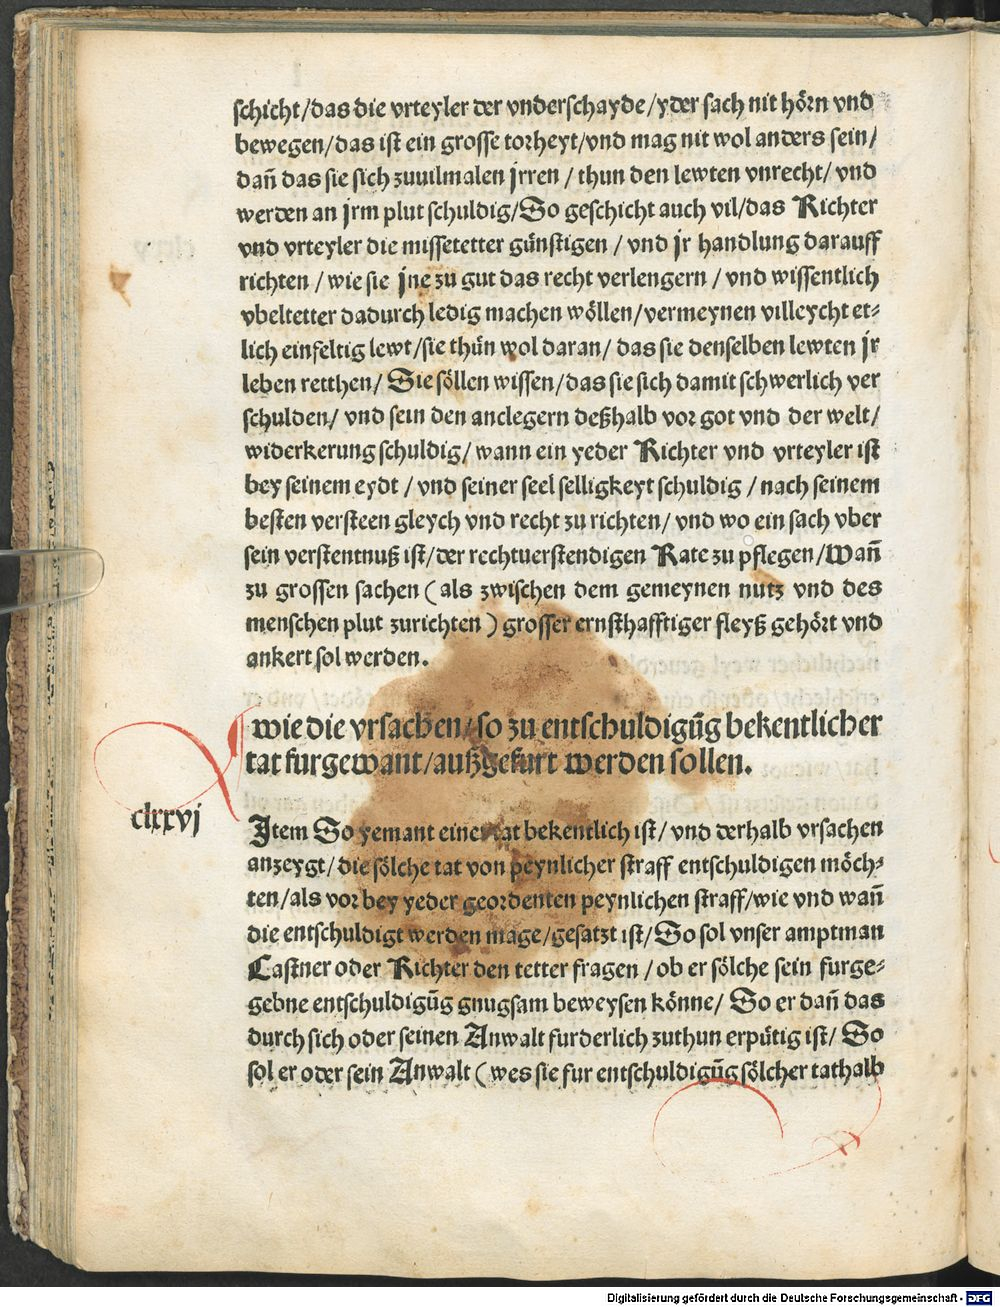 schicht/das die vrteyler der vnderschayde/yder sach nit hörn vnd
bewegen/das ist ein grosse torheyt/vnd mag nit wol anders sein/
dañ das sie sich zuuilmalen jrren / thun den lewten vnrecht/ vnd
werden an jrm plut schuldig/So geschicht auch vil/das Richter
vnd vrteyler die missetetter günstigen / vnd jr handlung darauff
richten / wie sie jne zu gut das recht verlengern / vnd wissentlich
vbeltetter dadurch ledig machen wöllen/vermeynen villeycht et⸗
lich einfeltig lewt/sie thün wol daran/ das sie denselben lewten jr
leben retthen/ Sie söllen wissen/das sie sich damit schwerlich ver
schulden/ vnd sein den anclegern deßhalb vor got vnd der welt/
widerkerung schuldig/ wann ein yeder Richter vnd vrteyler ist
bey seinem eydt / vnd seiner seel selligkeyt schuldig / nach seinem
besten versteen gleych vnd recht zu richten/ vnd wo ein sach vber
sein verstentnuß ist/der rechtuerstendigen Rate zu pflegen/Wañ
zu grossen sachen ( als zwischen dem gemeynen nutz vnd des
menschen plut zurichten ) grosser ernsthafftiger fleyß gehört vnd
ankert sol werden.
wie die vrsachen/so zu entschuldigūg bekentlicher
tat furgewant/außgefurt werden sollen.
clxxvj
Jtem So yemant einer tat bekentlich ist/ vnd derhalb vrsachen
anzeygt/die sölche tat von peynlicher straff entschuldigen möch⸗
ten/als vor bey yeder geordenten peynlichen straff/wie vnd wañ
die entschuldigt werden mage/gesatzt ist/ So sol vnser amptman
Castner oder Richter den tetter fragen / ob er sölche sein furge⸗
gebne entschuldigūg gnugsam beweysen könne/ So er dañ das
durch sich oder seinen Anwalt furderlich zuthun erpütig ist/ So
sol er oder sein Anwalt ( wes sie fur entschuldigūg sölcher tathalb
Digitalisierung gefördert durch die Deutsche Forschungsgemeinschaft - DFG